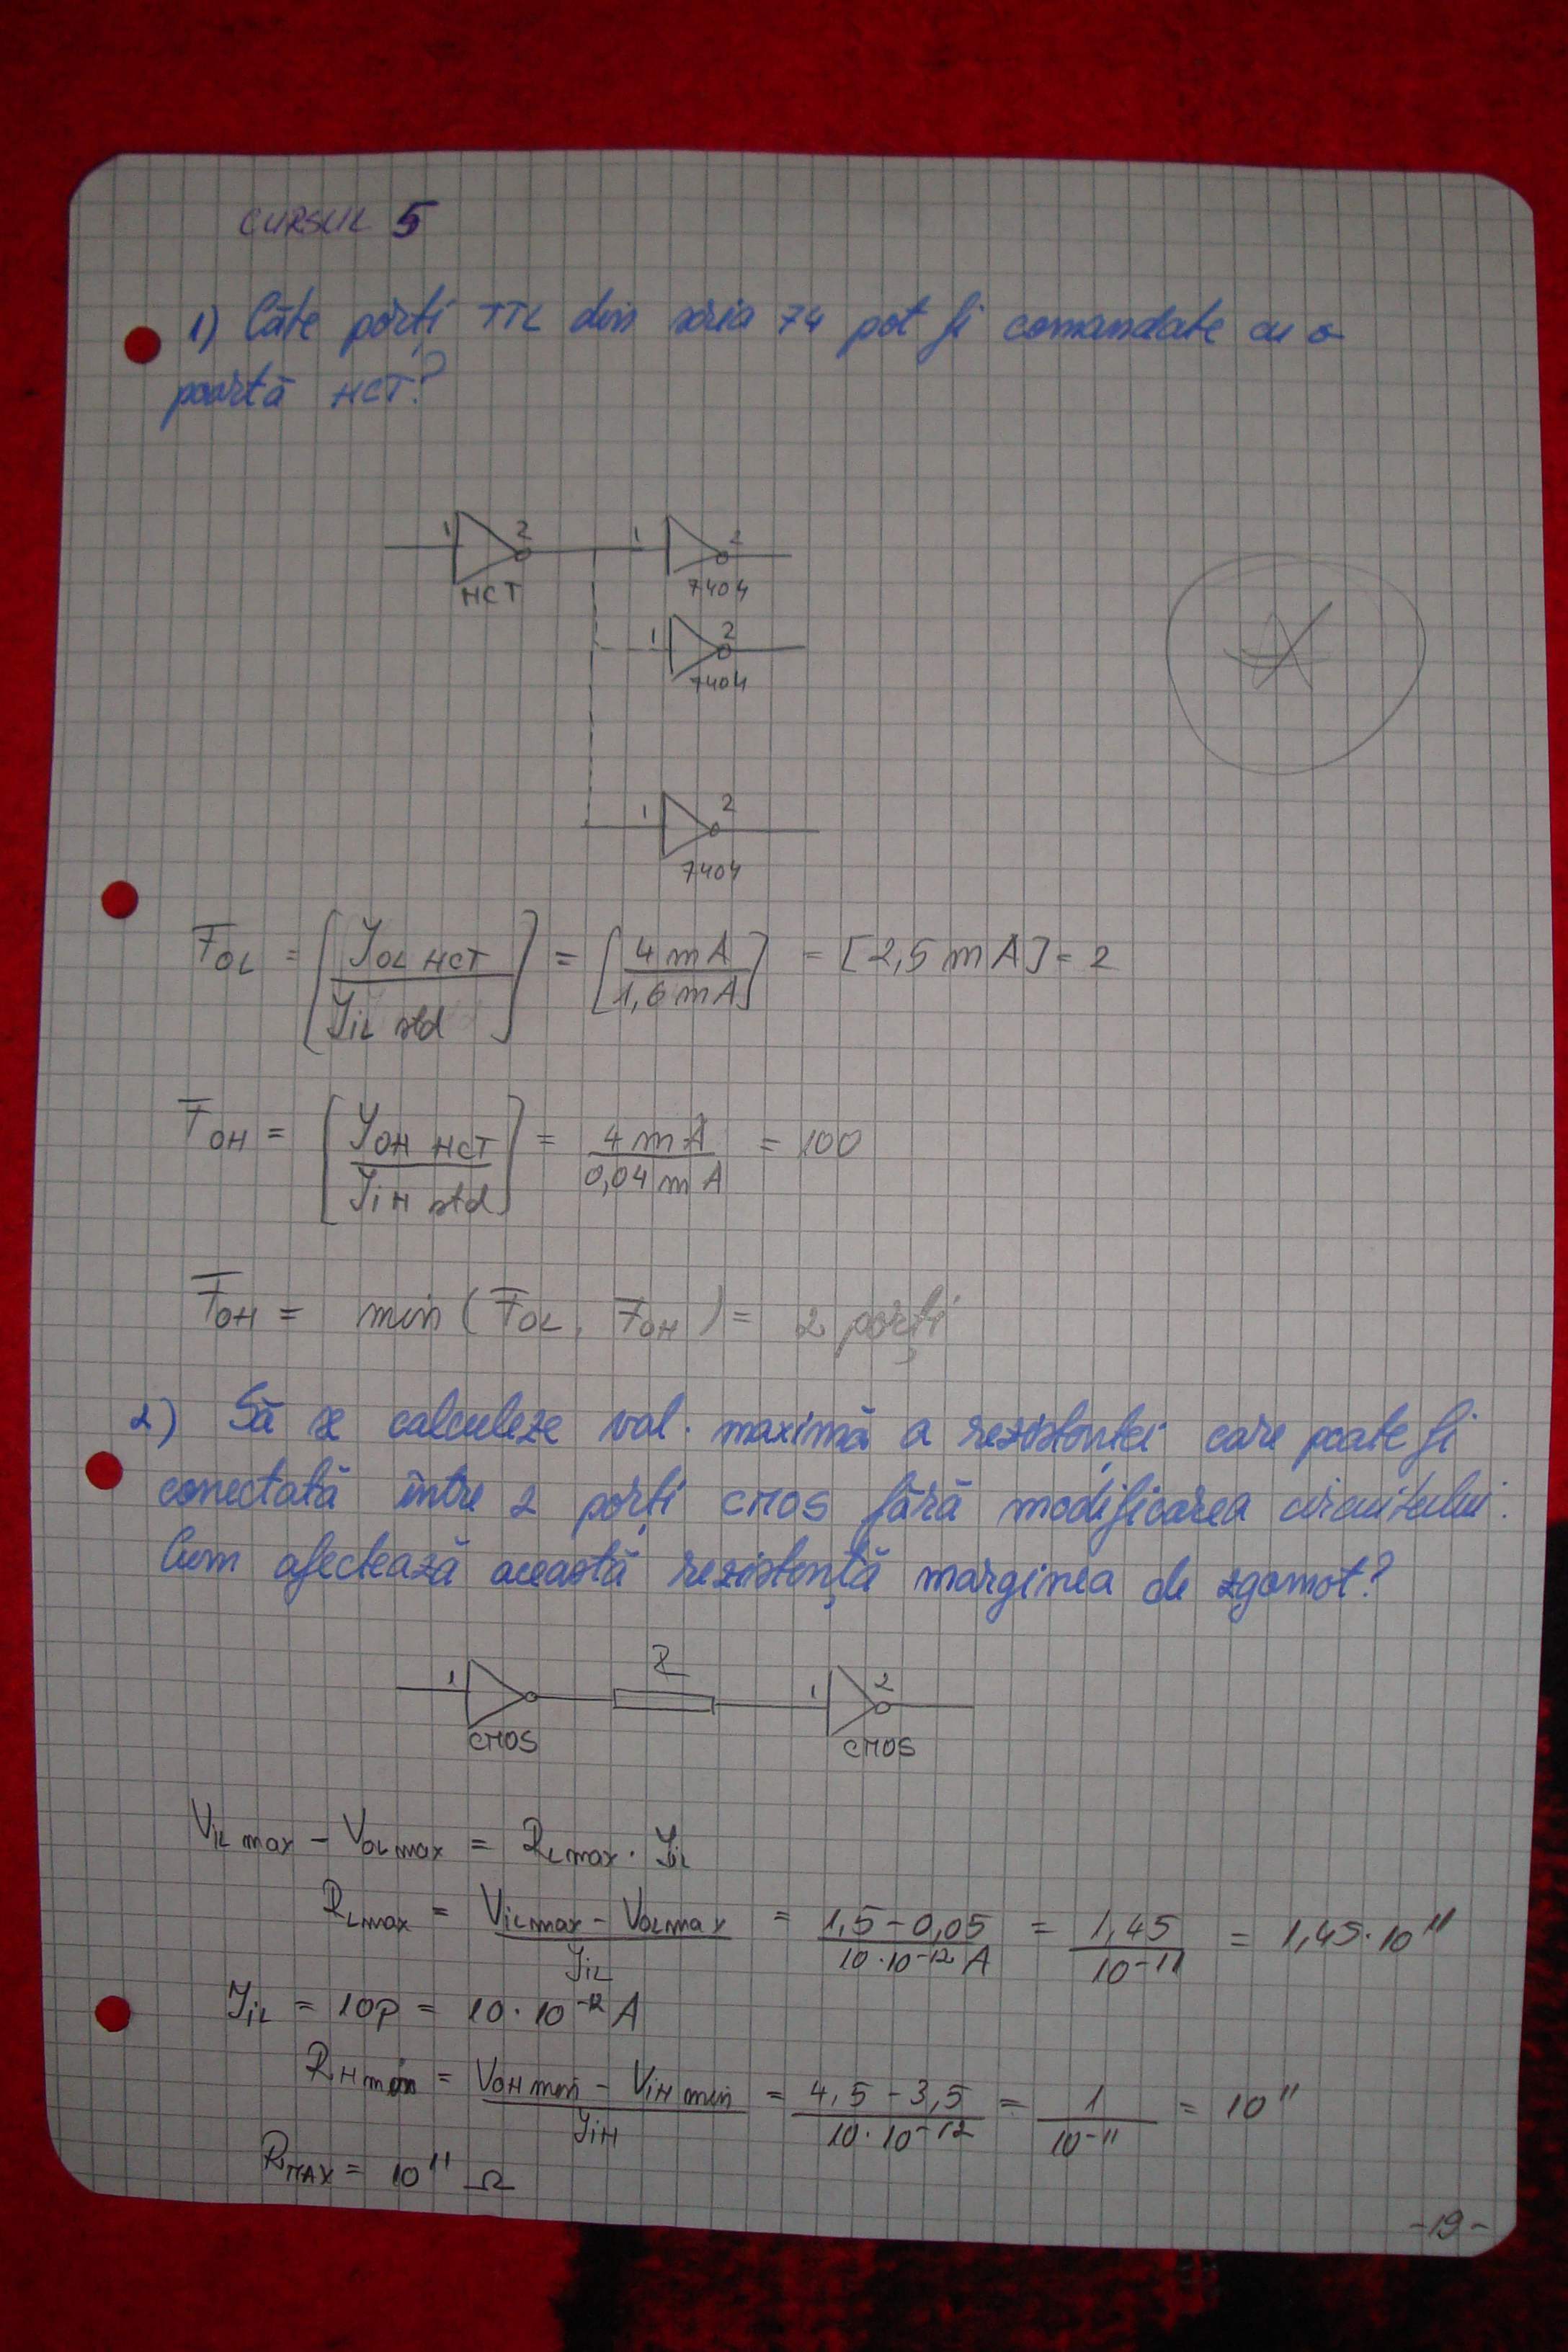 CURSUL 5
1) Câte porți TTL din seria 74 pot fi comandate cu o
poartă HCT?
1 2 1 2
HCT 7404
1 2
7404
1 2
7404
FOL = [IOL HCT / IIL std] = [4 mA / 1,6 mA] = [2,5 mA] = 2
FOH = [IOH HCT / IIH std] = 4 mA / 0,04 mA = 100
FOH = min (FOL, FOH) = 2 porți
2) Să se calculeze val. maximă a rezistenței care poate fi
conectată între 2 porți CMOS fără modificarea circuitului.
Cum afectează această rezistență marginea de zgomot?
R
1 1 2
CMOS CMOS
VIL max - VOL max = RL max · IIL
RL max = VIL max - VOL max / IIL = 1,5 - 0,05 / 10·10⁻¹² A = 1,45 / 10⁻¹¹ = 1,45·10¹¹
IIL = 10p = 10·10⁻¹² A
RH min = VOH min - VIH min / IIH = 4,5 - 3,5 / 10·10⁻¹² = 1 / 10⁻¹¹ = 10¹¹
RMAX = 10¹¹ Ω
-19-